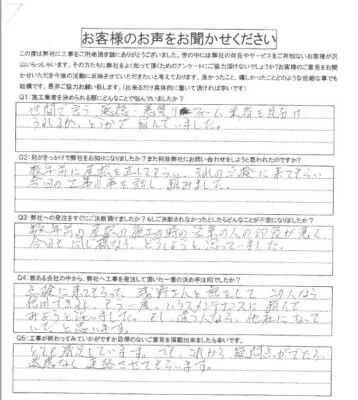 お客様のお声をお聞かせください
この度は弊社に工事をご用命頂き誠にありがとうございました。世の中には弊社の存在やサービスをご存知ないお客様が沢
山いらっしゃいます。その方たちに弊社をよく知って頂くためのアンケートにご協力頂けないでしょうか?お客様のご意見をお聞
かせいただき今後の活動に反映させていただきたいと考えております。良かったこと、嬉しかったことどのような些細な事でも
結構です。是非ご協力お願い致します。(出来るだけ具体的に書いて頂ければ幸いです)
Q1:施工業者を決められる際にどんなことで悩んでいましたか?
世間で言う、悪徳、悪質リフォーム業者を見分け
られるか、どうかで悩んでいました。
Q2:何がきっかけで弊社をお知りになりましたか?また何故弊社にお問い合わせをしようと思われたのですか?
数年前に屋根を直してもらい、それの点検に来てもらい
今回の工事の事を話し頼みました。
Q3:弊社への発注をすぐにご決断頂けましたか?もしご決断されなかったとしたらどんなことが不安になりましたか?
数年前の屋根の施工の時の営業の人の印象が悪く、
今回も同じ様なら、どうしようと思っていました。
Q4:数ある会社の中から、弊社へ工事を発注して頂いた一番の決め手は何でしたか?
点検に来てもらって、さんと話をして この人なら
信用できる 一度、ハウスメンテナンスに頼んで
みようと思いました。もし、違う人なら、他社になって
いたと思います。
Q5:工事が終わってみていかがですか忌憚のないご意見を頂戴出来ましたら幸いです。
とても満足しています。で、これから疑問点がでたら、
遠慮なく連絡させてもらいます。